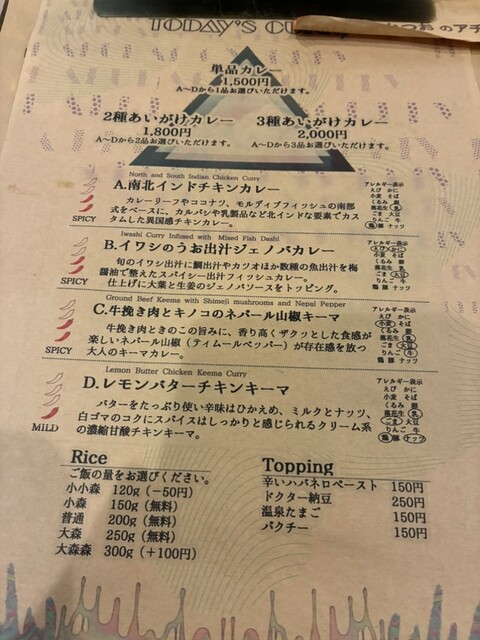 TODAY'S CU
のアチ
単品カレー
1,500円
A～Dから1品お選びいただけます。
2種あいがけカレー
1,800円
A～Dから2品お選びいただけます。
3種あいがけカレー
2,000円
A～Dから3品お選びいただけます。
North and South Indian Chicken Curry
A.南北インドチキンカレー
カレーリーフやココナツ、モルディブフィッシュの南部
式をベースに、カルパシや乳製品など北インドな要素でカス
タムした異国感チキンカレー。
SPICY
アレルギー表示
えび かに
小麦 そば
くるみ 卵
落花生 乳
ごま 大豆
りんご 牛
鶏 豚 ナッツ
Iwashi Curry Infused with Mixed Fish Dashi
B.イワシのうお出汁ジェノバカレー
旬のイワシ出汁に鯛出汁やカツオほか数種の魚出汁を梅
醤油で整えたスパイシー出汁フィッシュカレー。
仕上げに大葉と生姜のジェノバソースをトッピング。
SPICY
アレルギー表示
えび かに
小麦 そば
くるみ 卵
落花生 乳
ごま 大豆
りんご 牛
鶏 豚 ナッツ
Ground Beef Keema with Shimeji mushrooms and Nepal Pepper
C.牛挽き肉とキノコのネパール山椒キーマ
牛挽き肉ときのこの旨みに、香り高くザクッとした食感が
楽しいネパール山椒（ティムールペッパー）が存在感を放つ
大人のキーマカレー。
SPICY
アレルギー表示
えび かに
小麦 そば
くるみ 卵
落花生 乳
ごま 大豆
りんご 牛
鶏 豚 ナッツ
Lemon Butter Chicken Keema Curry
D.レモンバターチキンキーマ
バターをたっぷり使い辛味はひかえめ、ミルクとナッツ、
白ゴマのコクにスパイスはしっかりと感じられるクリーム系
の濃縮甘酸チキンキーマ。
MILD
アレルギー表示
えび かに
小麦 そば
くるみ 卵
落花生 乳
ごま 大豆
りんご 牛
鶏 豚 ナッツ
Rice
ご飯の量をお選びください。
小小森 120g（−50円）
小森 150g（無料）
普通 200g（無料）
大森 250g（無料）
大森森 300g（＋100円）
Topping
辛いハバネロペースト 150円
ドクター納豆 250円
温泉たまご 150円
パクチー 150円